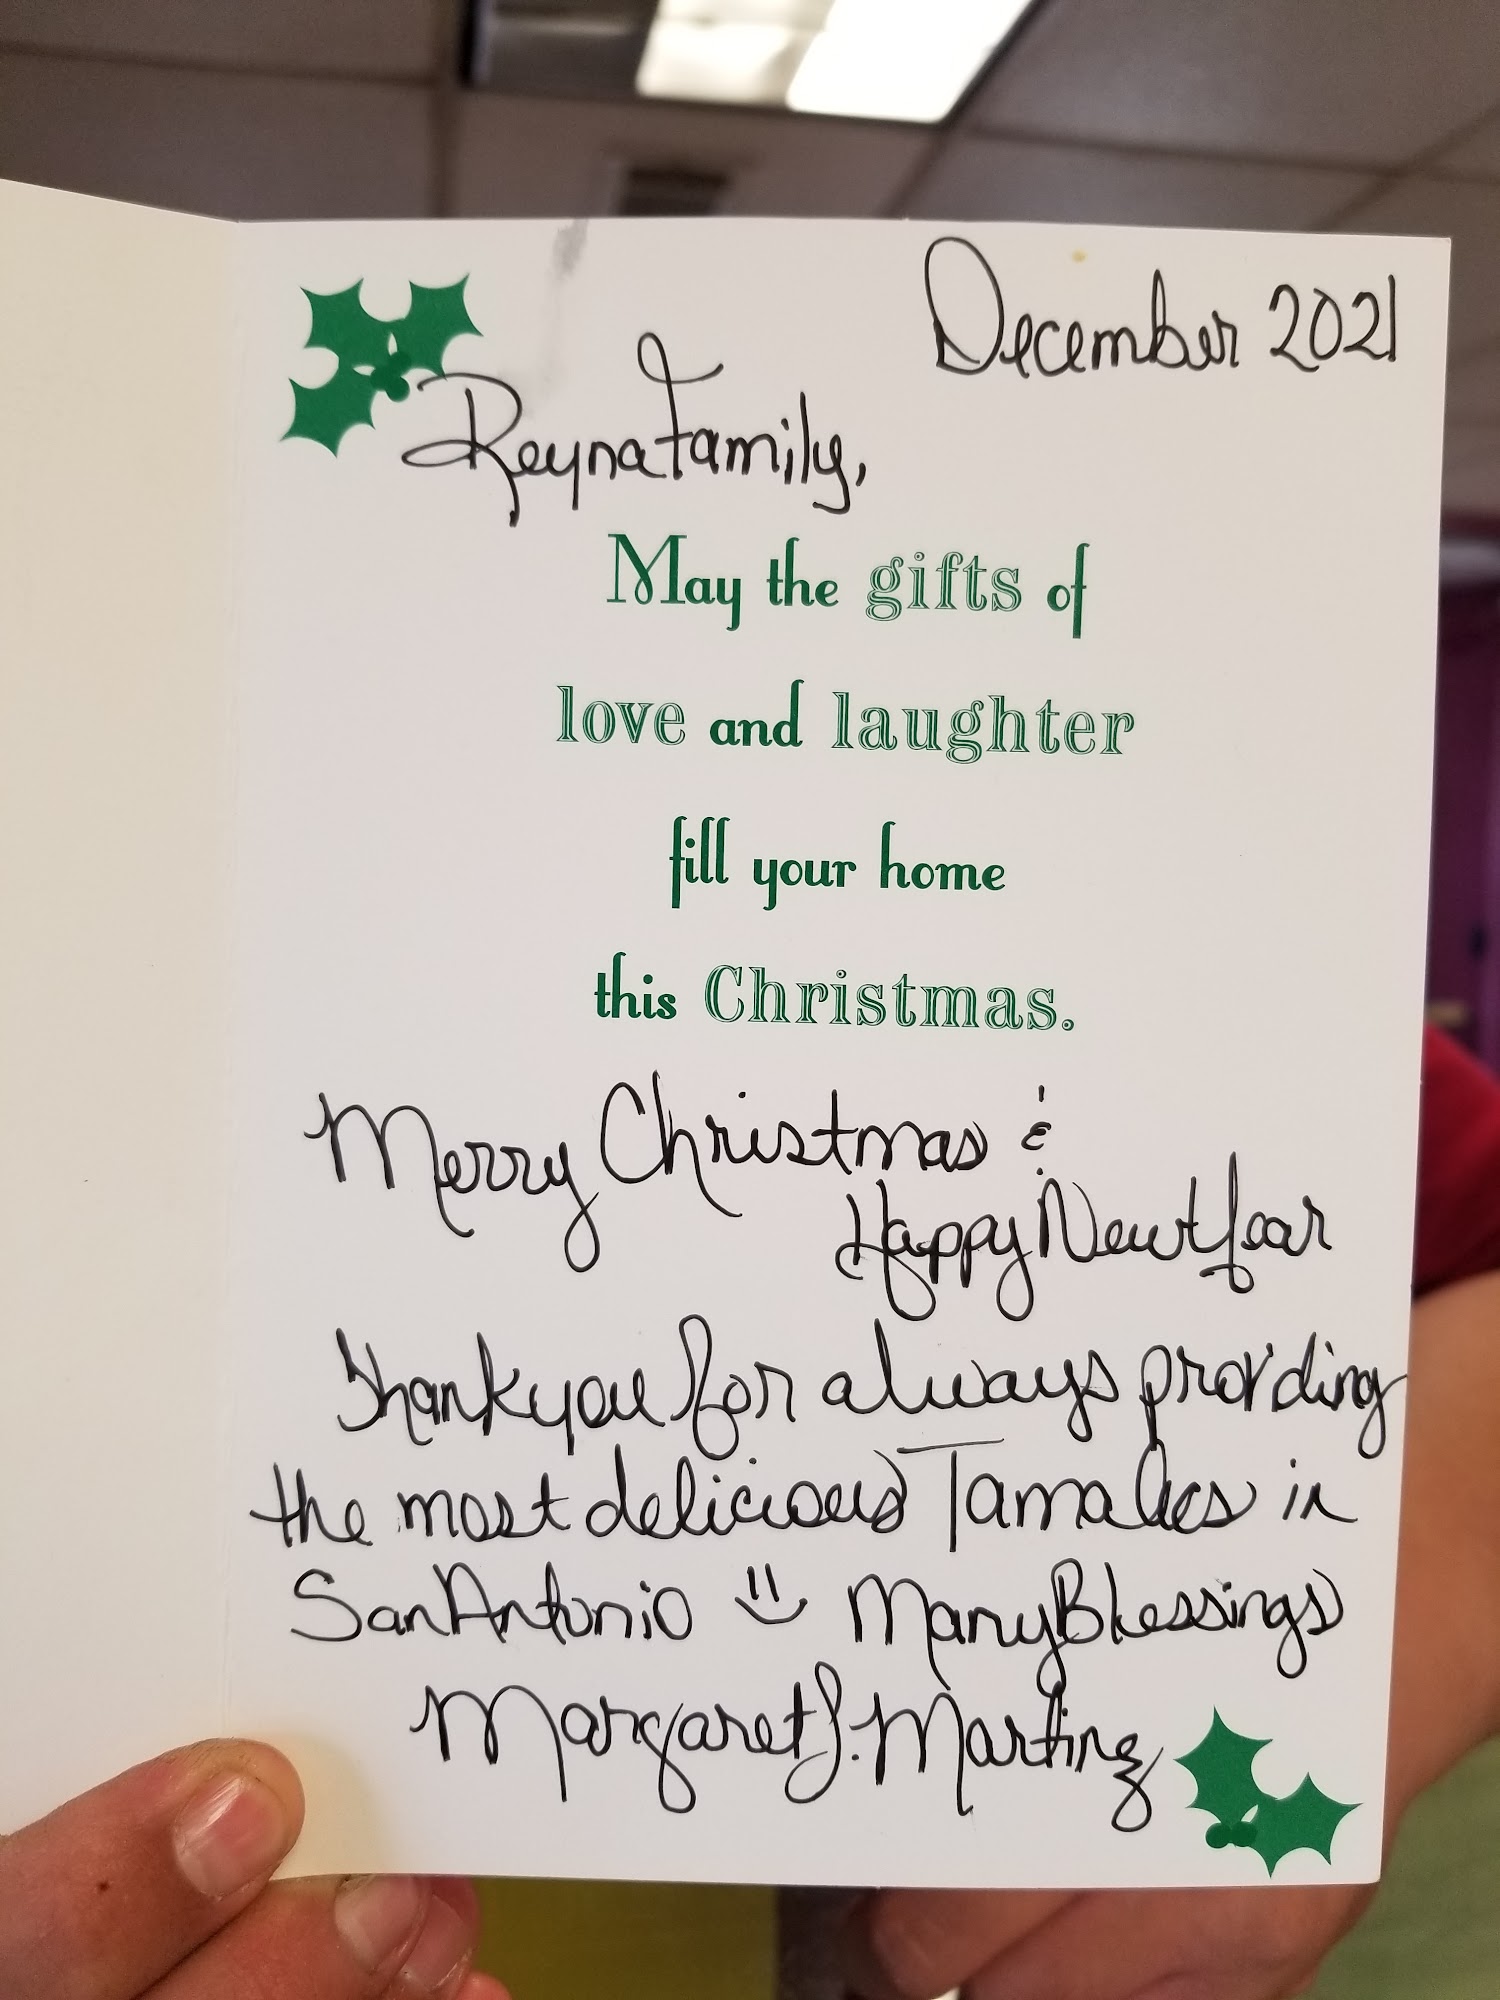 December 2021
Reyna Family,
May the gifts of
love and laughter
fill your home
this Christmas.
Merry Christmas &
Happy New Year
Thank you for always providing
the most delicious Tamales in
San Antonio Many Blessings
Margaret J. Martinez